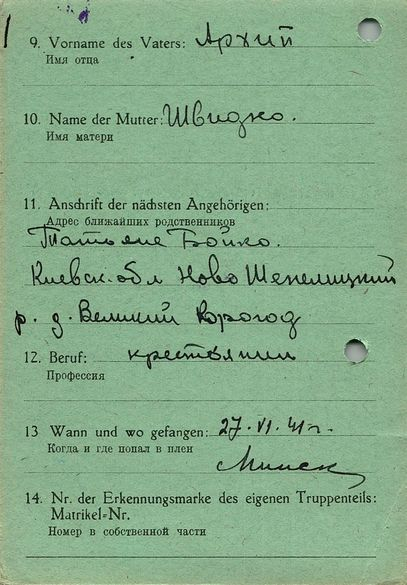 9. Vorname des Vaters: Архип
Имя отца
10. Name der Mutter: Швидко.
Имя матери
11. Anschrift der nächsten Angehörigen:
Адрес ближайших родственников
Татьяне Бойко.
Киевск. обл Ново Шепелицкий
р. д. Великий Корогод
12. Beruf: крестьянин
Профессия
13 Wann und wo gefangen: 27. VI. 41 г.
Когда и где попал в плен
Минск
14. Nr. der Erkennungsmarke des eigenen Truppenteils:
Matrikel-Nr.
Номер в собственной части